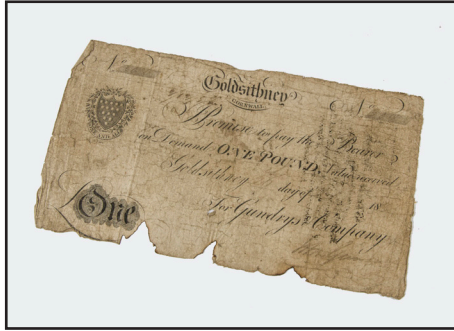 Nº Goldsithney Nº
CORNWALL
I Promise to pay the Bearer
on Demand ONE POUND, Value received
Goldsithney day of 18
For Gundrys & Company
£ One